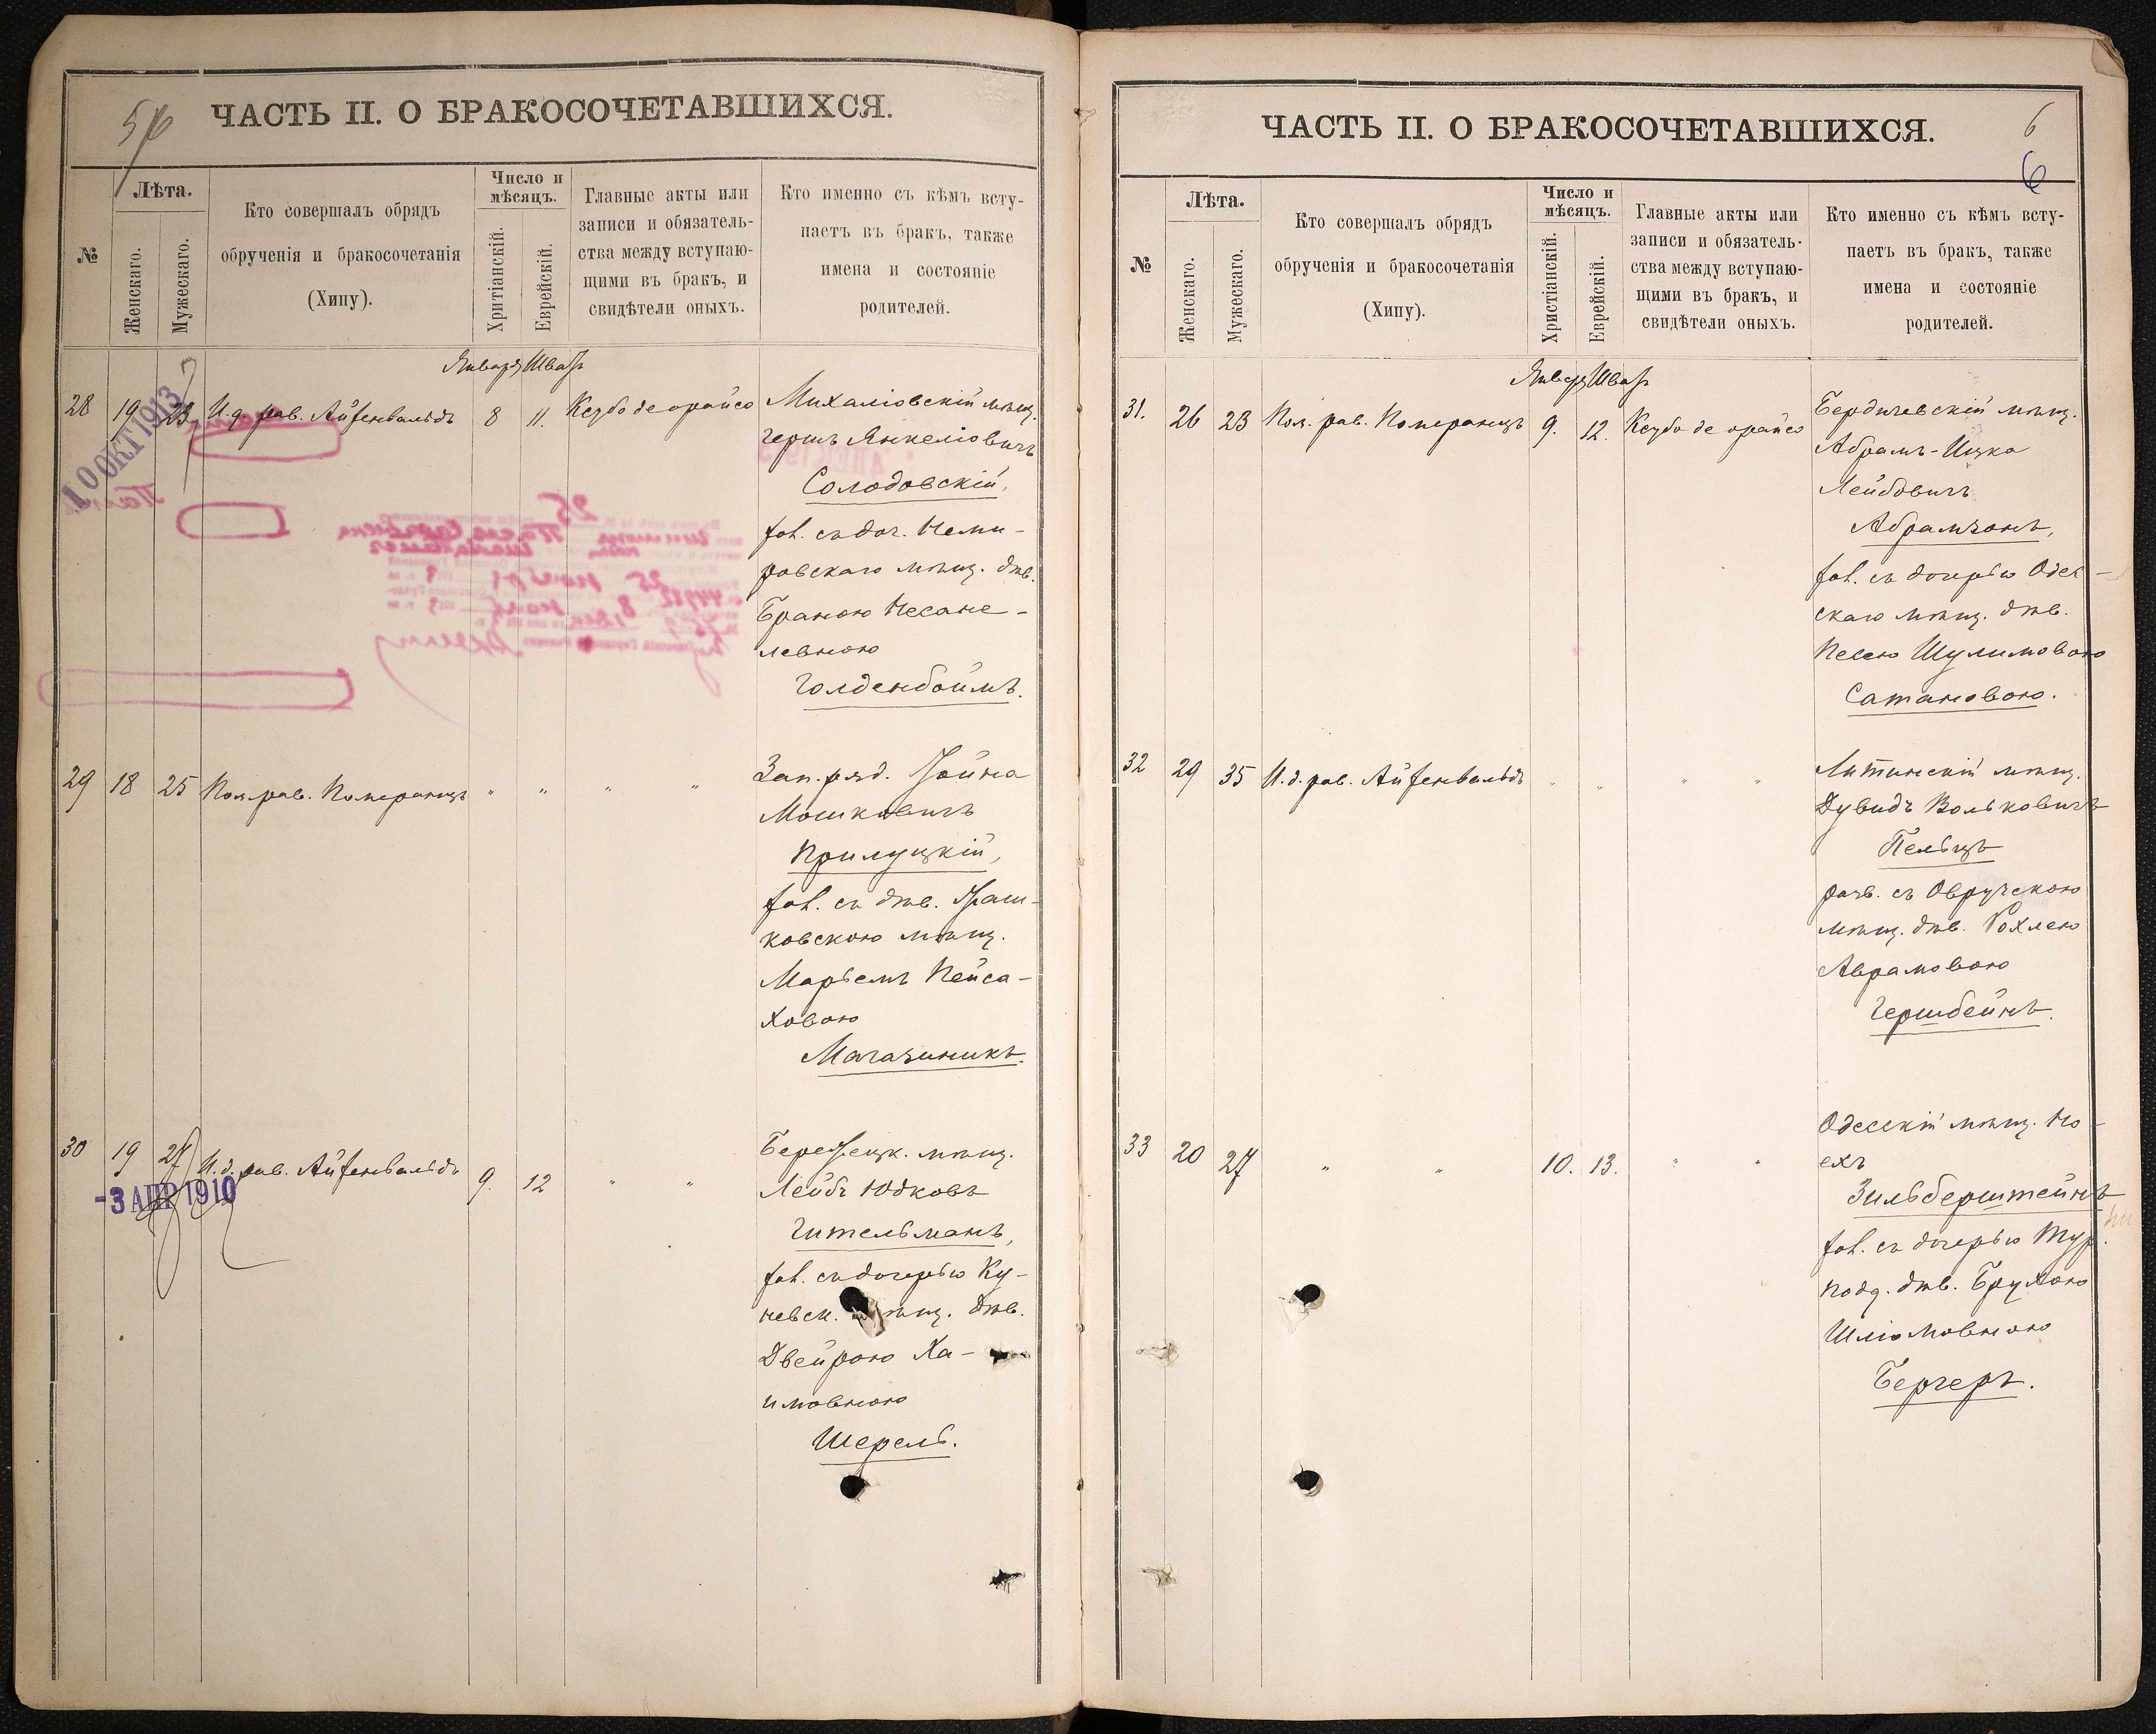 5
ЧАСТЬ II. О БРАКОСОЧЕТАВШИХСЯ.
№
Лѣта.
Женскаго.
Мужескаго.
Кто совершалъ обрядъ
обрученія и бракосочетанія
(Хипу).
Число и
мѣсяцъ.
Хритіанскій.
Еврейскій.
Главные акты или
записи и обязатель-
ства между вступаю-
щими въ бракъ, и
свидѣтели оныхъ.
Кто именно съ кѣмъ всту-
паетъ въ бракъ, также
имена и состояніе
родителей.
Января Шват
28 19 23 И.д. рав. Айзенвальдъ 8 11. Ксубо деорайсо
10 ОКТ 1913
Михаліовскій мѣщ.
Гершъ Янкеліовичъ
Солодовскій,
хол. съ доч. Неми-
ровскаго мѣщ. дѣв.
Браною Несане-
левною
Голденбоймъ.
29 18 25 Пом. рав. Померанцъ " " " "
Зап. ряд. Хойна
Мошковичъ
Прилуцкій,
хол. съ дѣв. Храш-
ковскою мѣщ.
Марьемъ Пейса-
ховою
Магазиникъ.
30 19 27 И.д. рав. Айзенвальдъ 9. 12 " "
-3 АПР 1910
мѣщ.
Лейбъ Юдковъ
Гительманъ,
хол. съ дочерью Ку-
невск. мѣщ. дѣв.
Двейрою Ха-
имовною
Шерель.
6
6
ЧАСТЬ II. О БРАКОСОЧЕТАВШИХСЯ.
№
Лѣта.
Женскаго.
Мужескаго.
Кто совершалъ обрядъ
обрученія и бракосочетанія
(Хипу).
Число и
мѣсяцъ.
Христіанскій.
Еврейскій.
Главные акты или
записи и обязатель-
ства между вступаю-
щими въ бракъ, и
свидѣтели оныхъ.
Кто именно съ кѣмъ всту-
паетъ въ бракъ, также
имена и состояніе
родителей.
Января Шват
31. 26 23 Пом. рав. Померанцъ 9. 12. Ксубо деорайсо
Бердичевскій мѣщ.
Абрамъ-Ицко
Лейбовичъ
Абрамзонъ,
хол. съ дочерью Одес-
скаго мѣщ. дѣв.
Песею Шулимовою
Сатановою.
32 29 35 И.д. рав. Айзенвальдъ " " " "
Литинскій мѣщ.
Дувидъ Вольковичъ
Пельцъ
разв. съ Овручскою
мѣщ. дѣв. Рохлею
Аврамовою
Гершбейнъ.
33 20 27 " " 10. 13. " "
Одесскій мѣщ. Но-
ехъ
Зильберштейнъ
хол. съ дочерью Тур.
подд. дѣв. Брухою
Шліомовною
Бергеръ.